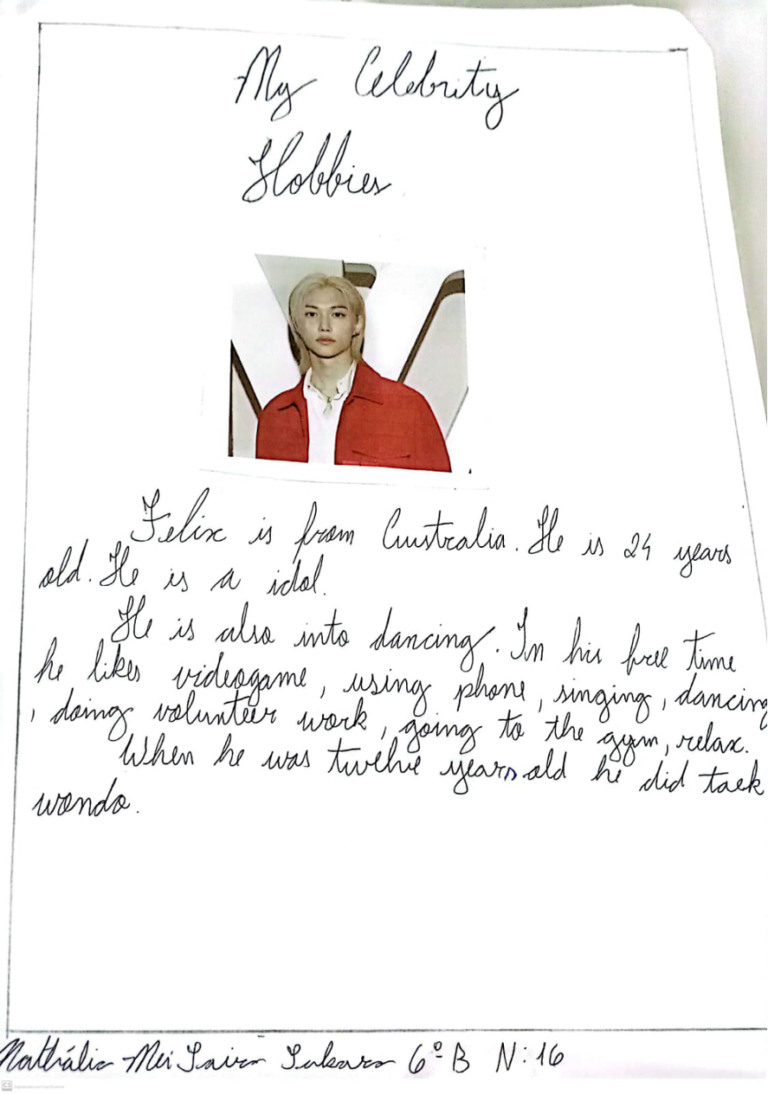 My Celebrity
Hobbies
Felix is from Australia. He is 24 years
old. He is a idol.
He is also into dancing. In his free time
he likes videogame, using phone, singing, dancing
, doing volunteer work, going to the gym, relax.
When he was twelve years old he did taek
wondo.
Nathália Mei 6º B N: 16